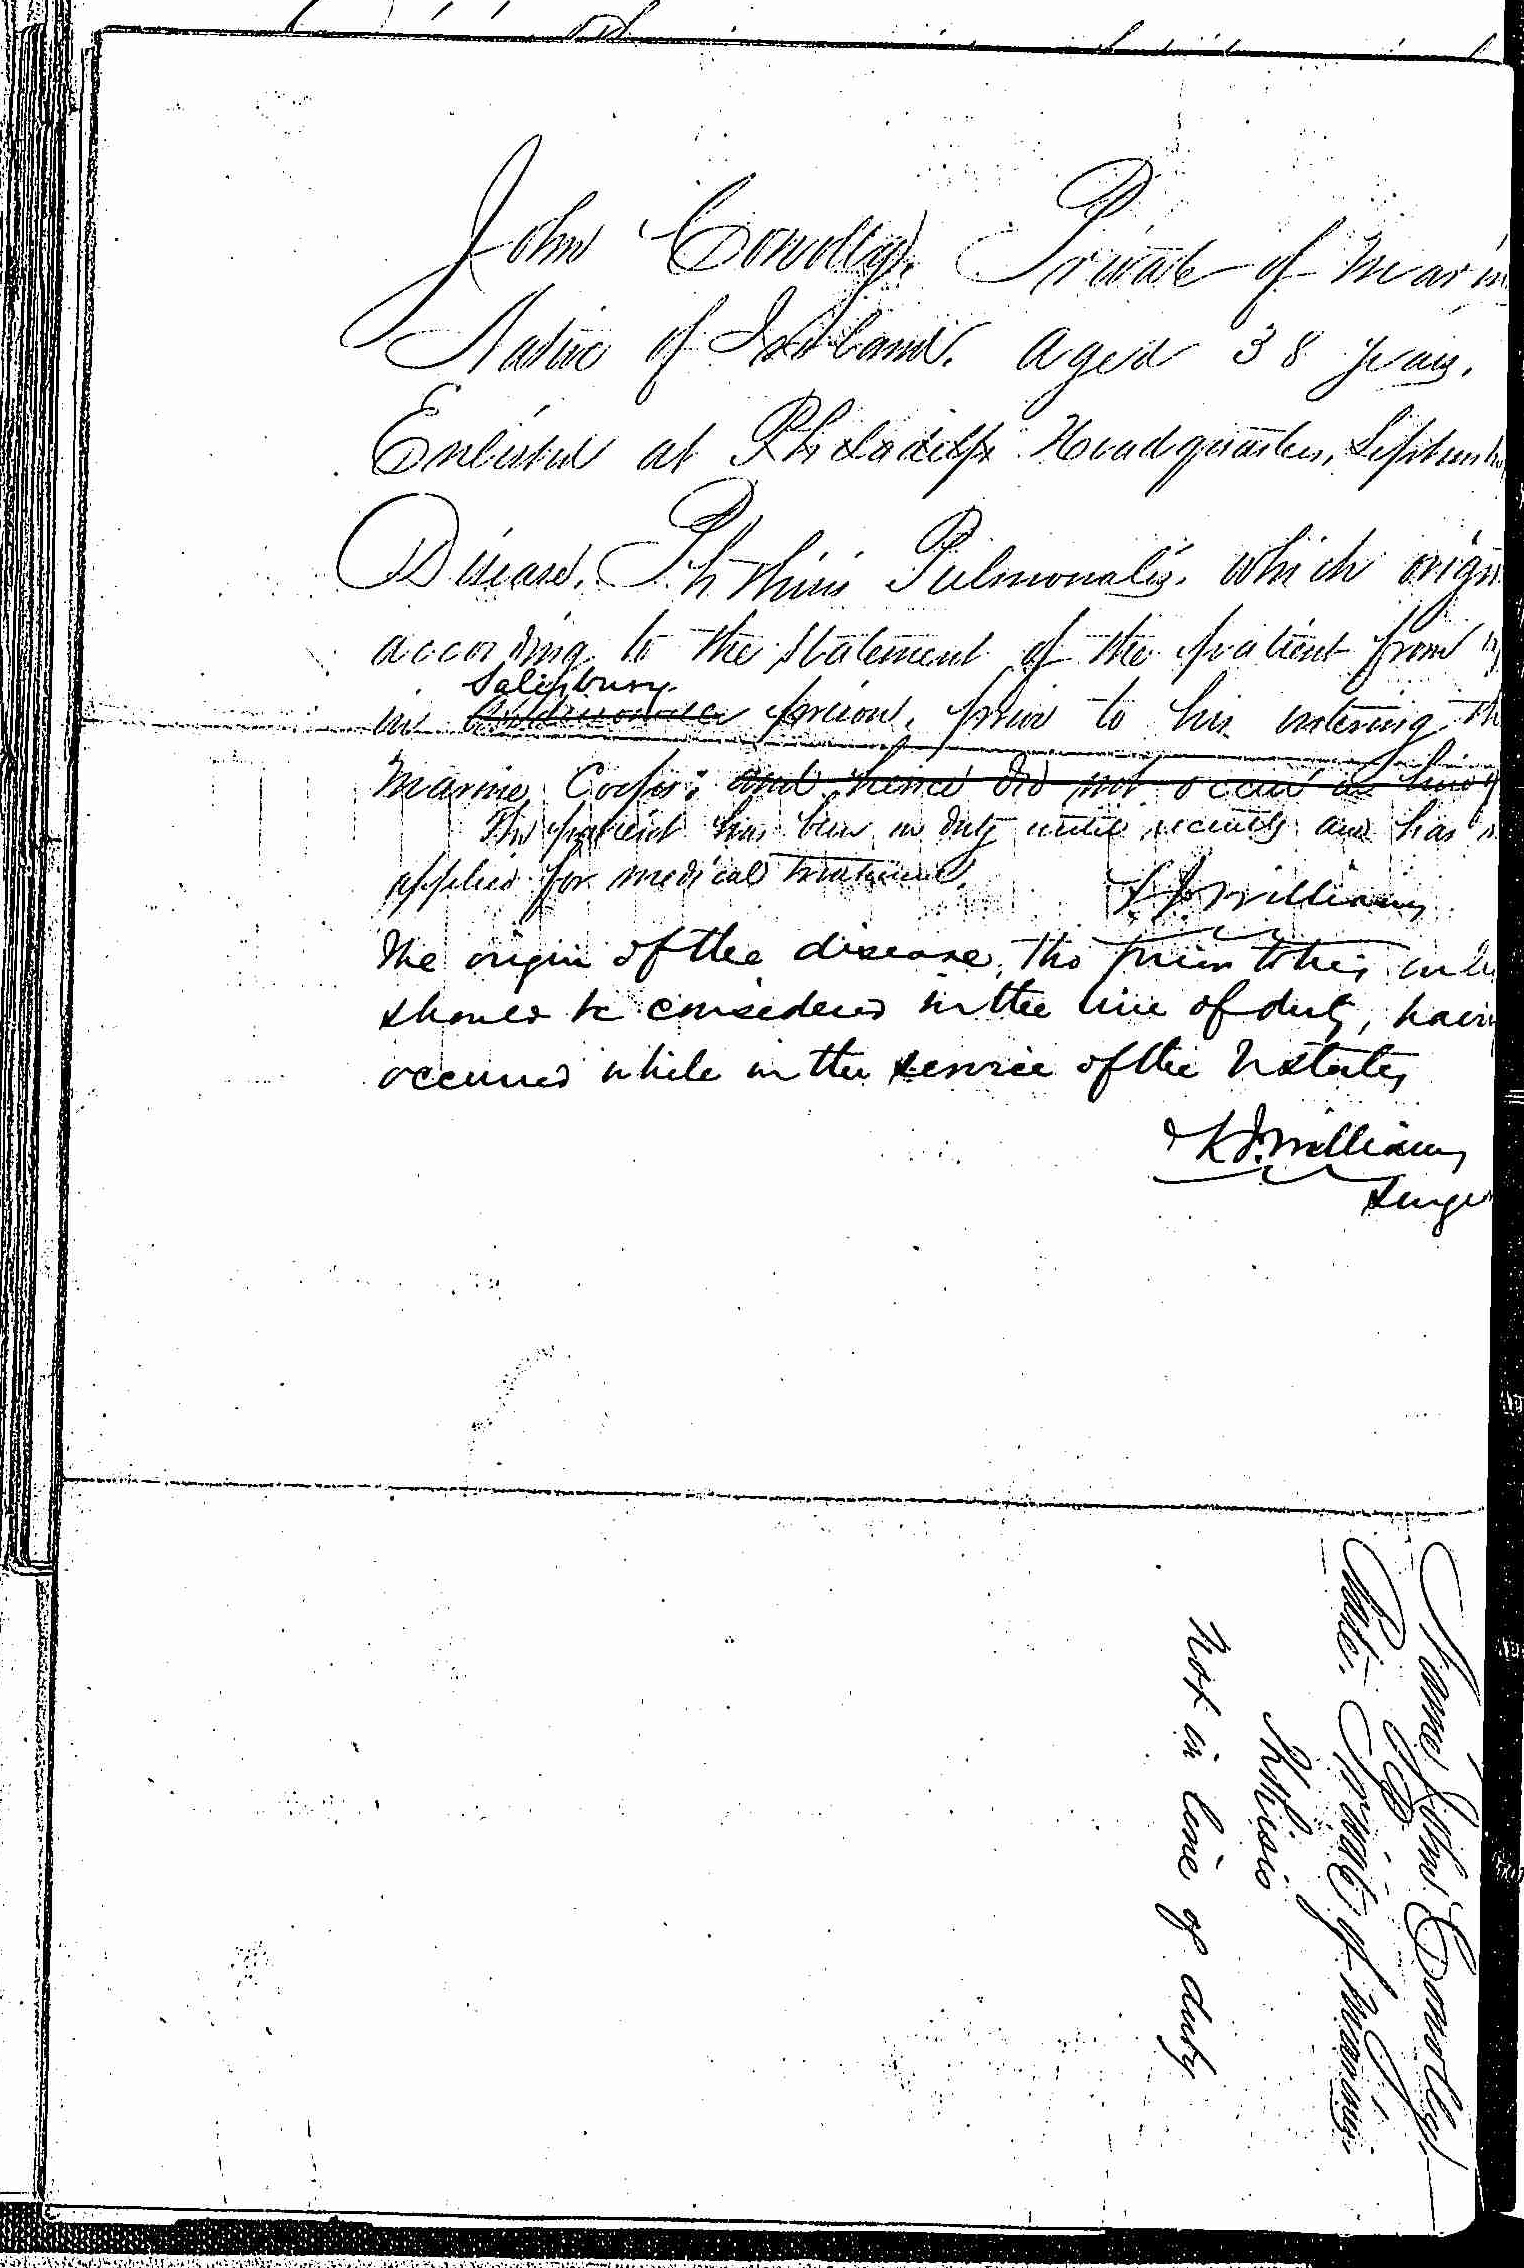 John Conolly. Private of Marin
Native of Ireland. aged 38 years.
Enlisted at Philadelp Headquarters, Septemb
Disease. Phthisis Pulmonalis. which origin
according to the statement of the patient from
Salisbury
in prison, prior to his entering th
Marine Corps; and hence did not occur in line of
The patient has been on duty until recently and has n
applied for medical treatment.
Williams
The origin of the disease, tho prior to his enli
should be considered in the line of duty, havin
occurred while in the service of the UStates
Williams
Surgeo
Name John Conolly.
Rate. Private of Marines.
Phthisis
Not in line of duty